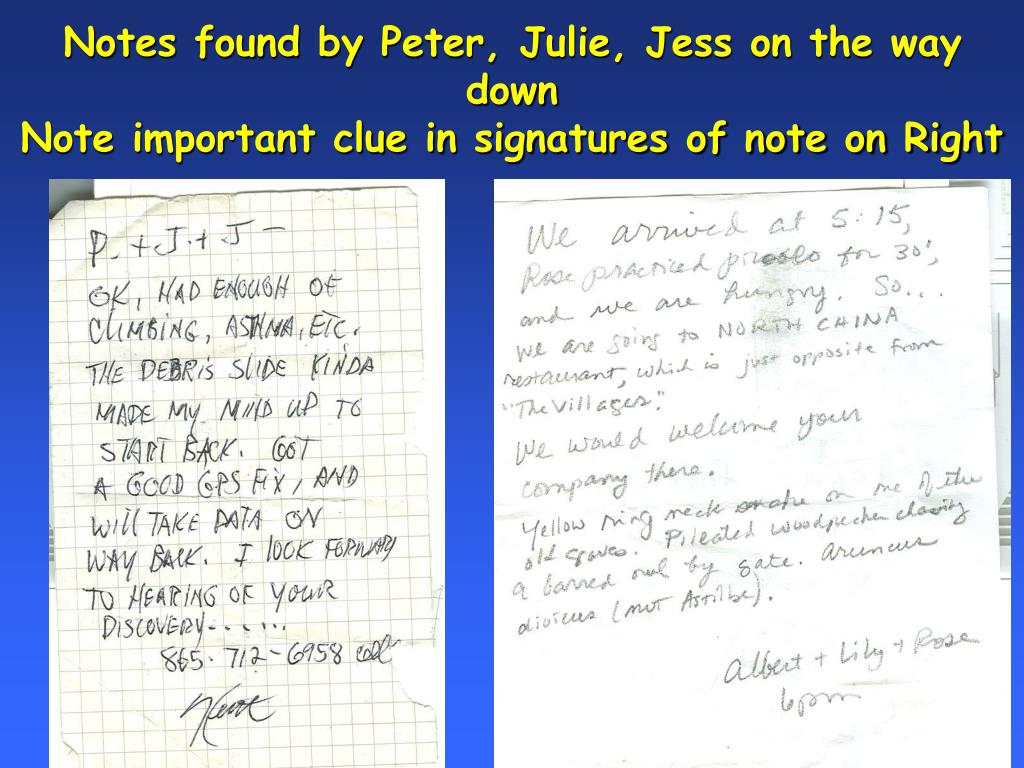 Notes found by Peter, Julie, Jess on the way
down
Note important clue in signatures of note on Right
P. + J. + J —
OK, HAD ENOUGH OF
CLIMBING, ASTHMA, ETC.
THE DEBRIS SLIDE KINDA
MADE MY MIND UP TO
START BACK. GOT
A GOOD GPS FIX, AND
WILL TAKE DATA ON
WAY BACK. I LOOK FORWARD
TO HEARING OF YOUR
DISCOVERY.......
865-712-6958 cell
We arrived at 5:15,
Rose practiced piccolo for 30',
and we are hungry. So...
we are going to NORTH CHINA
restaurant, which is just opposite from
"The Villages."
We would welcome your
company there.
Yellow ring neck snake on one of the
old graves. Pileated woodpecker chasing
a barred owl by gate. Aruncus
dioicus (not Astilbe).
Albert + Lily + Rose
6pm